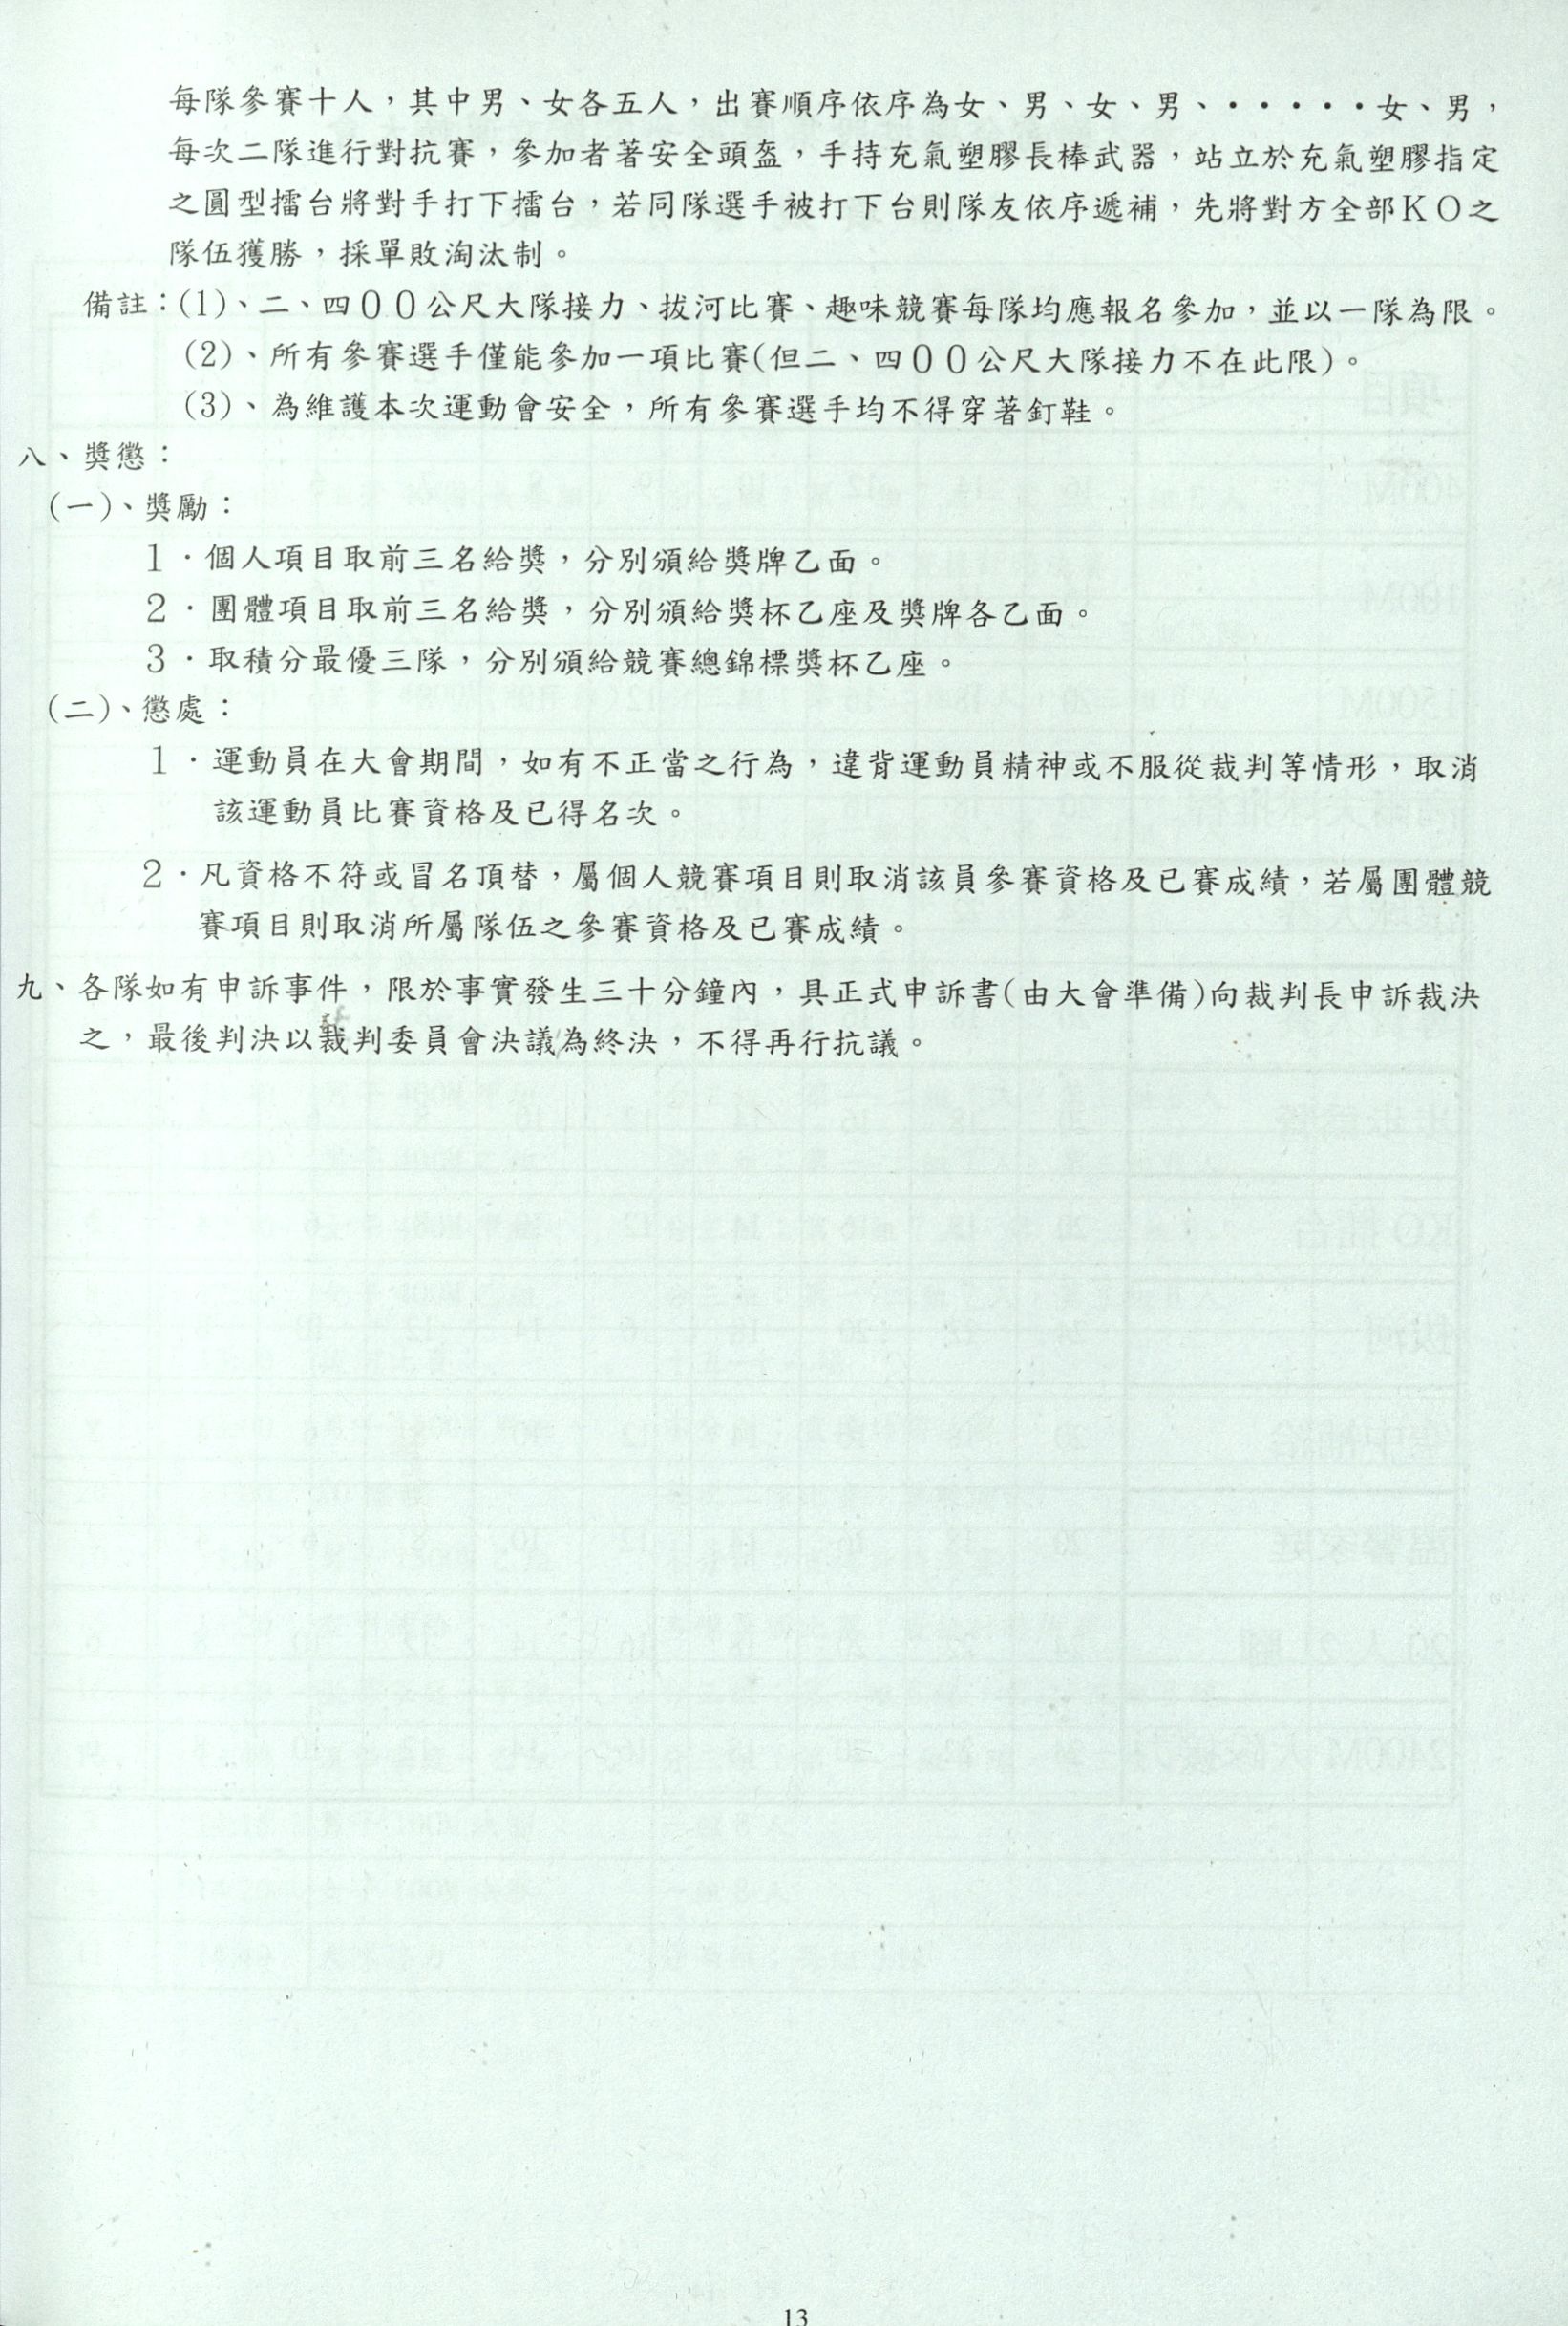 每隊參賽十人，其中男、女各五人，出賽順序依序為女、男、女、男、·····女、男，
每次二隊進行對抗賽，參加者著安全頭盔，手持充氣塑膠長棒武器，站立於充氣塑膠指定
之圓型擂台將對手打下擂台，若同隊選手被打下台則隊友依序遞補，先將對方全部KO之
隊伍獲勝，採單敗淘汰制。
備註：(1)、二、四００公尺大隊接力、拔河比賽、趣味競賽每隊均應報名參加，並以一隊為限。
(2)、所有參賽選手僅能參加一項比賽(但二、四００公尺大隊接力不在此限)。
(3)、為維護本次運動會安全，所有參賽選手均不得穿著釘鞋。
八、獎懲：
(一)、獎勵：
1．個人項目取前三名給獎，分別頒給獎牌乙面。
2．團體項目取前三名給獎，分別頒給獎杯乙座及獎牌各乙面。
3．取積分最優三隊，分別頒給競賽總錦標獎杯乙座。
(二)、懲處：
1．運動員在大會期間，如有不正當之行為，違背運動員精神或不服從裁判等情形，取消
該運動員比賽資格及已得名次。
2．凡資格不符或冒名頂替，屬個人競賽項目則取消該員參賽資格及已賽成績，若屬團體競
賽項目則取消所屬隊伍之參賽資格及已賽成績。
九、各隊如有申訴事件，限於事實發生三十分鐘內，具正式申訴書(由大會準備)向裁判長申訴裁決
之，最後判決以裁判委員會決議為終決，不得再行抗議。
13